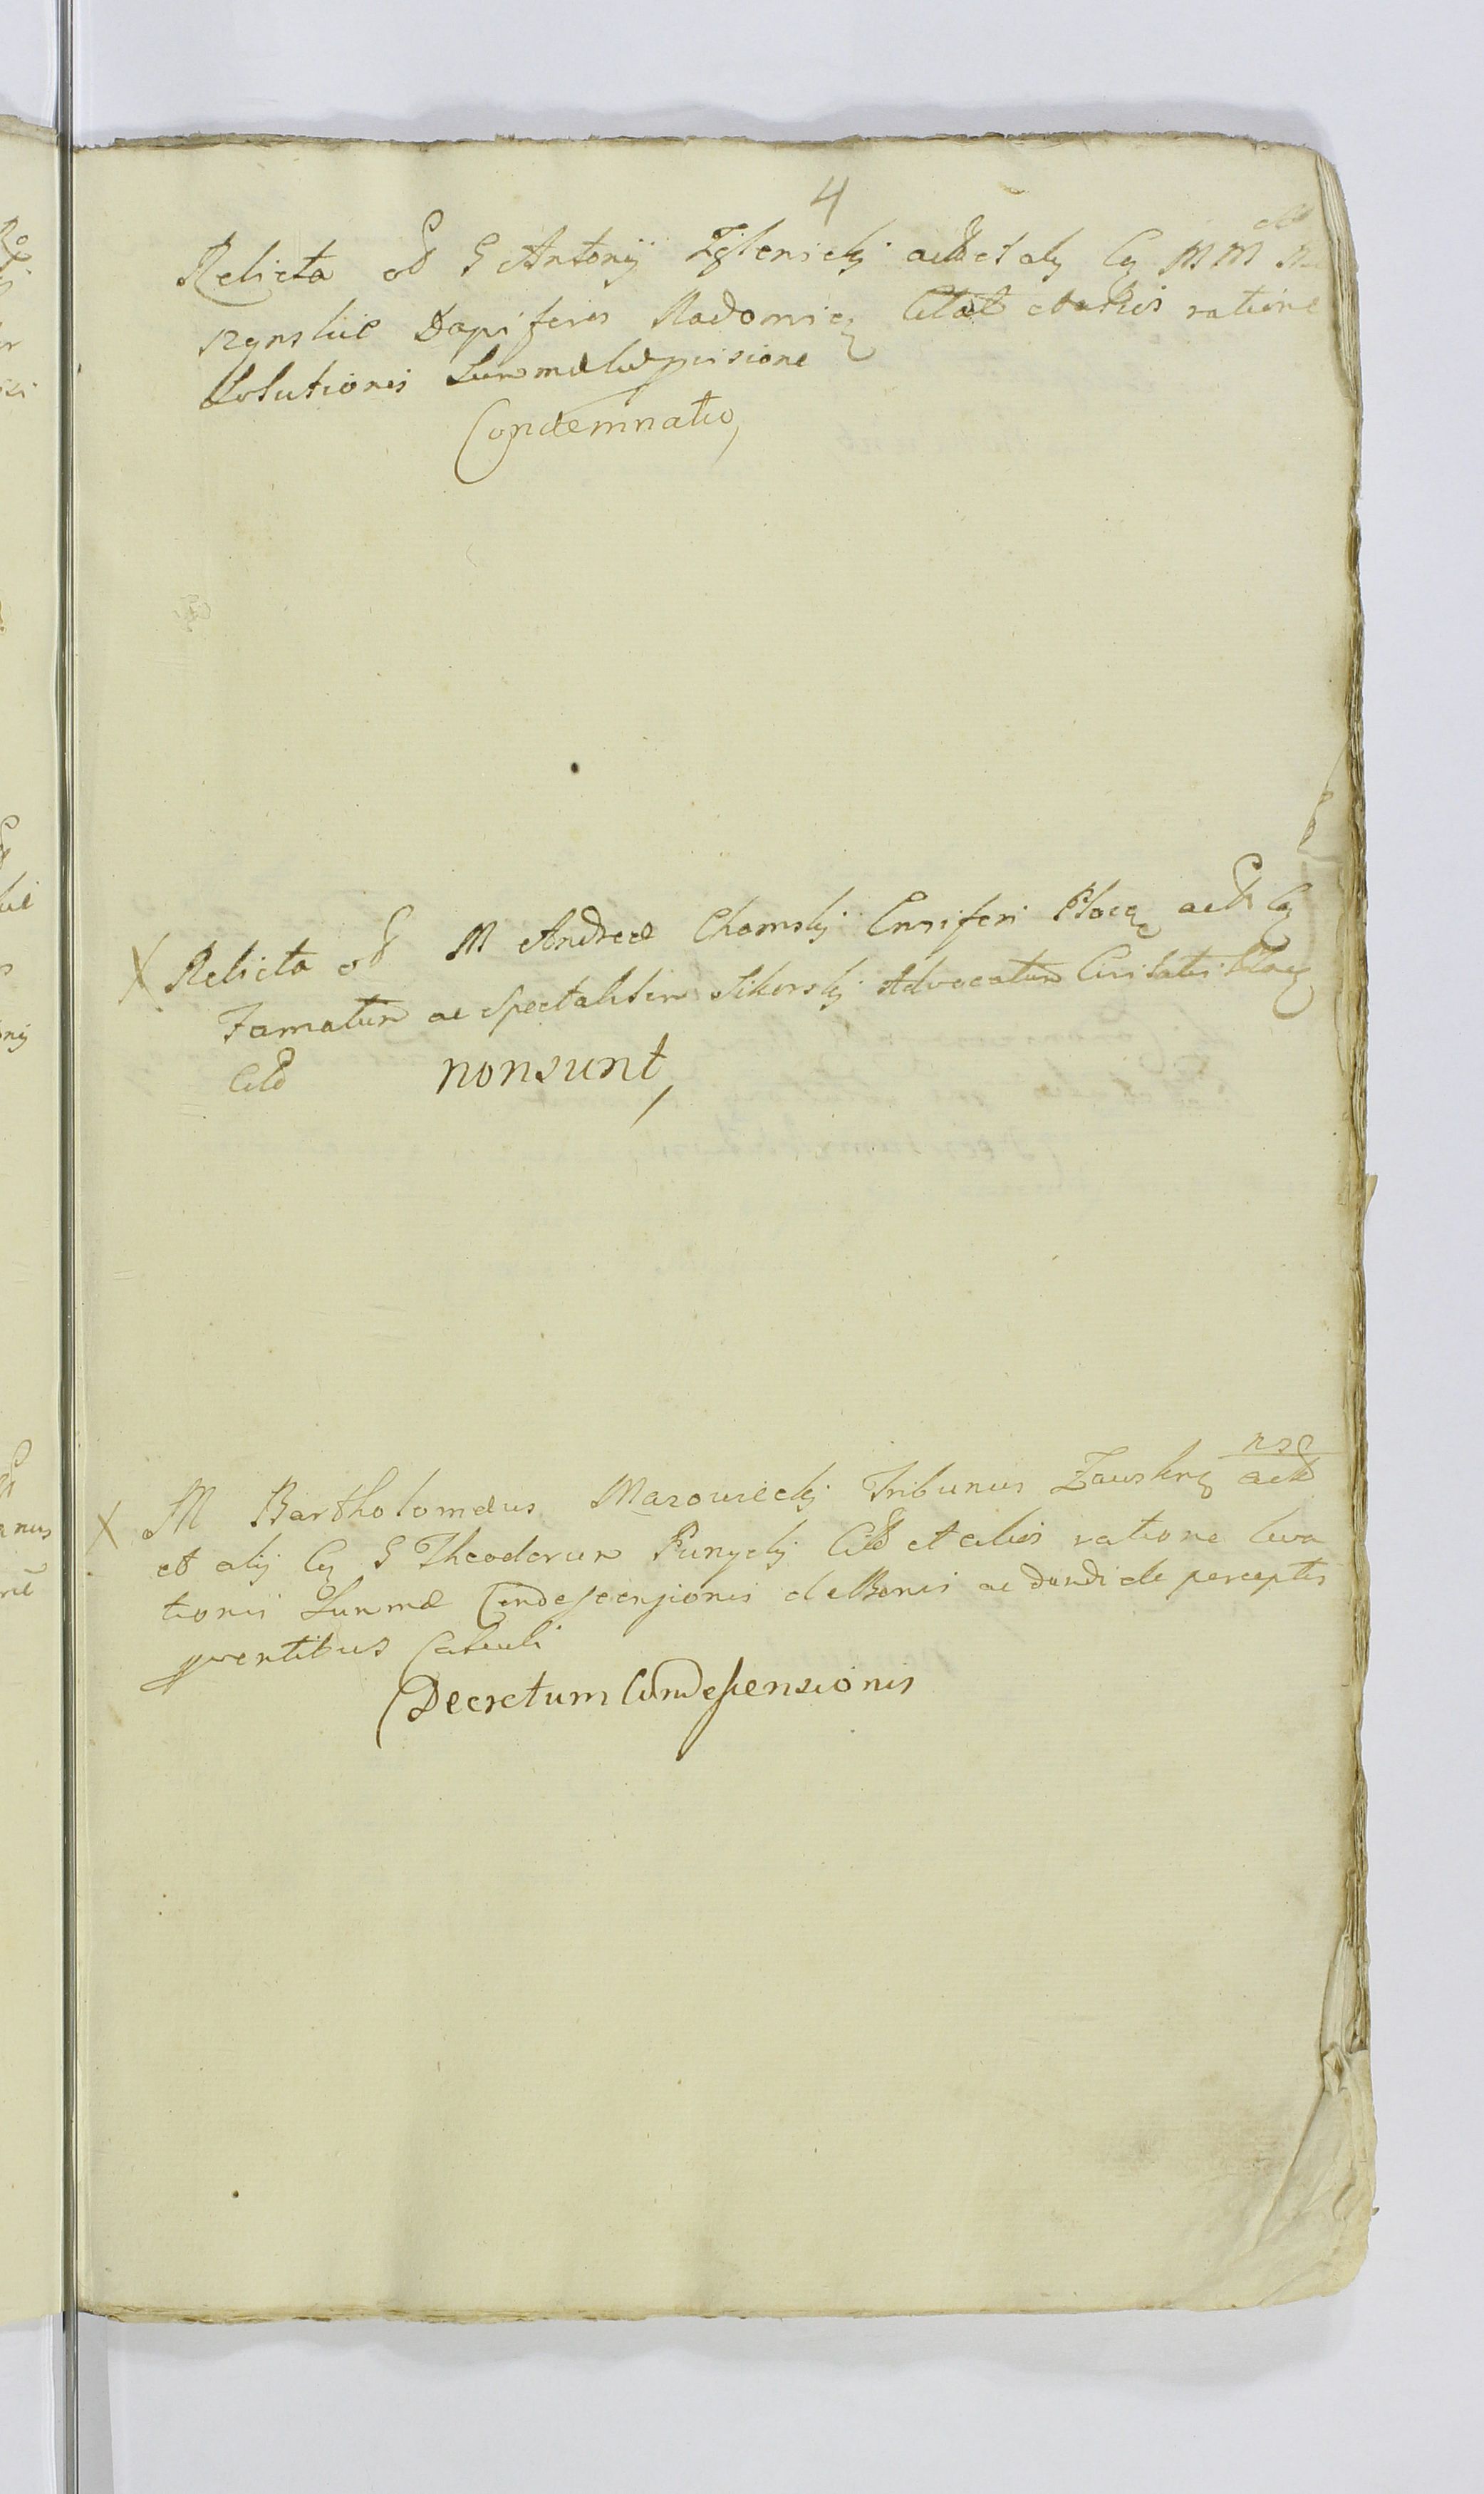 4
Relicta ob G Antonij Zglenickj act et alij Cq MM
Dapiferis Radomieq Citat et alios ratione
Solutionis Summae
Condemnatio,
X Relicta ob M Andreae Chomskj Ensiferi Plocq act Cq
Famatum ac Spectabilem Sikorskj Advocatum Civitatis Plocq
Citd nonsunt,
nse
X M Bartholomaeus Mazowieckj Tribunus Zawskrq act
et alij Cq G Theodorum Citd et alios ratione leva
tionis Summae Condescensionis de Bonis ac dandi de perceptis
Calculi
Decretum Condescensionis